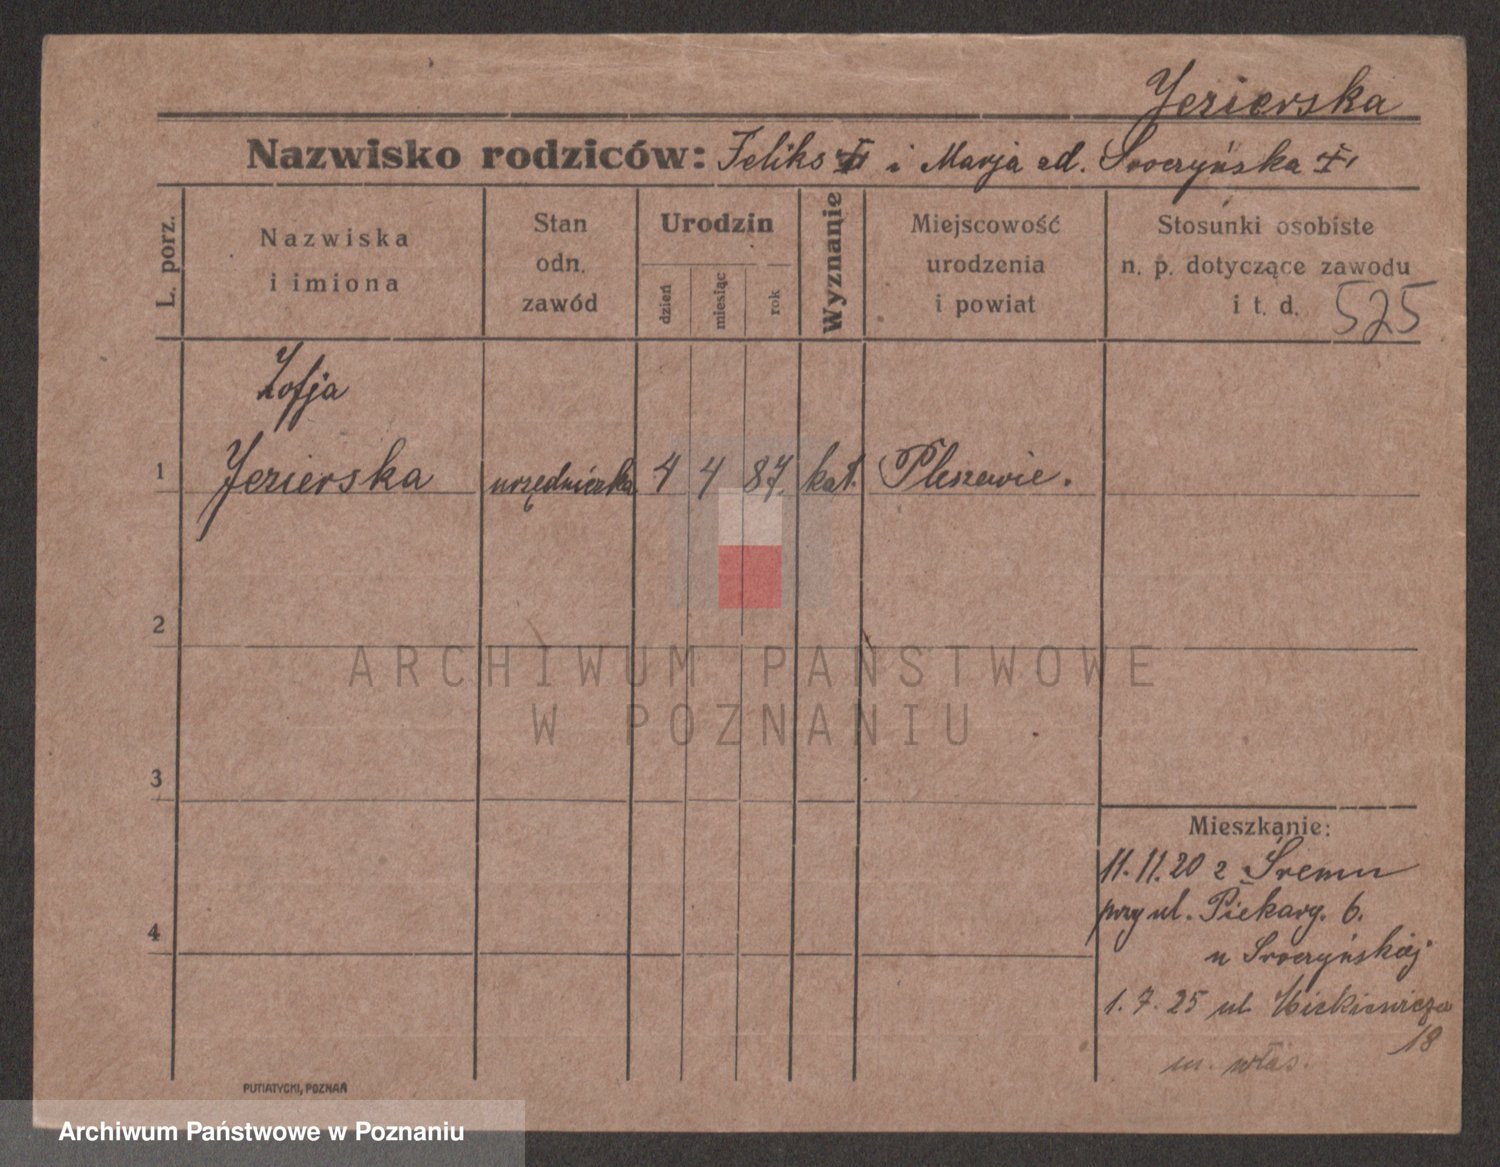 Jezierska
Nazwisko rodziców: Feliks i Marja zd. Swoczyńska
L. porz.
Nazwiska
i imiona
Stan
odn.
zawód
Urodzin
dzień
miesiąc
rok
Wyznanie
Miejscowość
urodzenia
i powiat
Stosunki osobiste
n. p. dotyczące zawodu
i t. d. 525
Zofja
1 Jezierska urzędniczka 4 4 87. kat. Pleszewie.
2
ARCHIWUM PAŃSTWOWE
W POZNANIU
3
Mieszkanie:
11.11.20 z Śremu
przy ul. Piekarg. 6.
4
u Swoczyńskiej
1.7.25 ul Mickiewicza
18
m. włas.
PUTIATYCKI, POZNAŃ
Archiwum Państwowe w Poznaniu